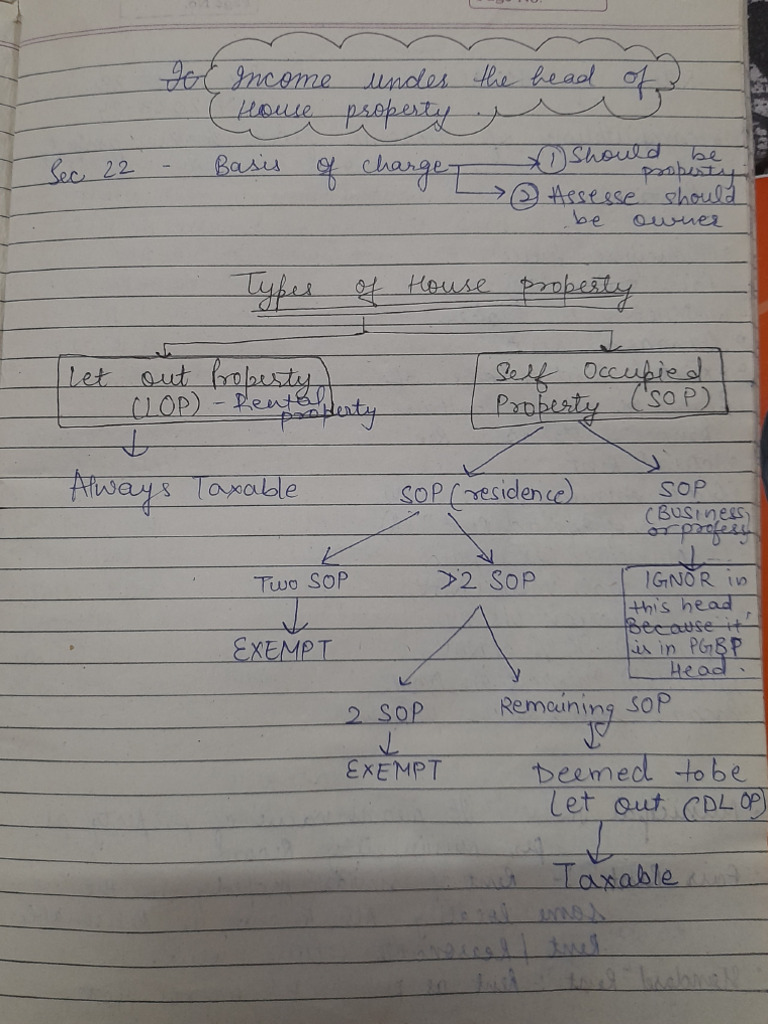 Income under the head of
House property.
Sec 22 - Basis of charge
① Should be
property
② Assesse should
be owner
Types of House property
Let out Property
(LOP) - Rental
property
Self Occupied
Property (SOP)
Always Taxable
SOP (residence)
SOP
(BUSINESS
or profess
Two SOP
>2 SOP
IGNOR in
this head,
Because it
is in PGBP
Head.
EXEMPT
2 SOP
Remaining SOP
EXEMPT
Deemed to be
Let out (DLOP)
Taxable